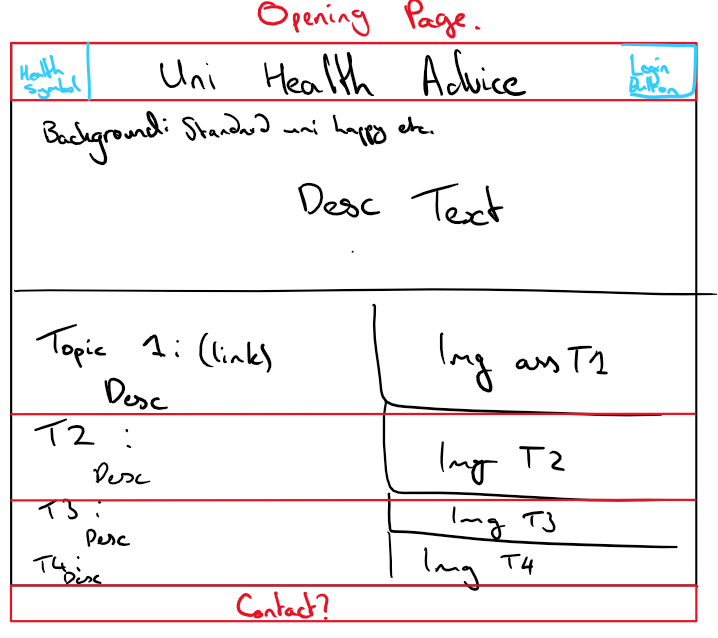 Opening Page.
Health Symbol
Uni Health Advice
Login Button
Background: Standard uni happy etc.
Desc Text
Topic 1: (link)
Desc
Img ass T1
T2 :
Desc
Img T2
T3 :
Desc
Img T3
T4:
Desc
Img T4
Contact?